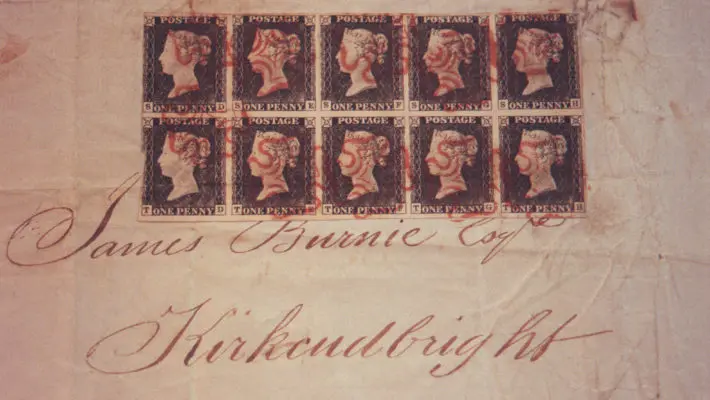 POSTAGE POSTAGE POSTAGE POSTAGE POSTAGE
S ONE PENNY D S ONE PENNY E S ONE PENNY F S ONE PENNY G S ONE PENNY H
POSTAGE POSTAGE POSTAGE POSTAGE POSTAGE
T ONE PENNY D T ONE PENNY E T ONE PENNY F T ONE PENNY G T ONE PENNY H
James Burnie Esqre
Kirkcudbright